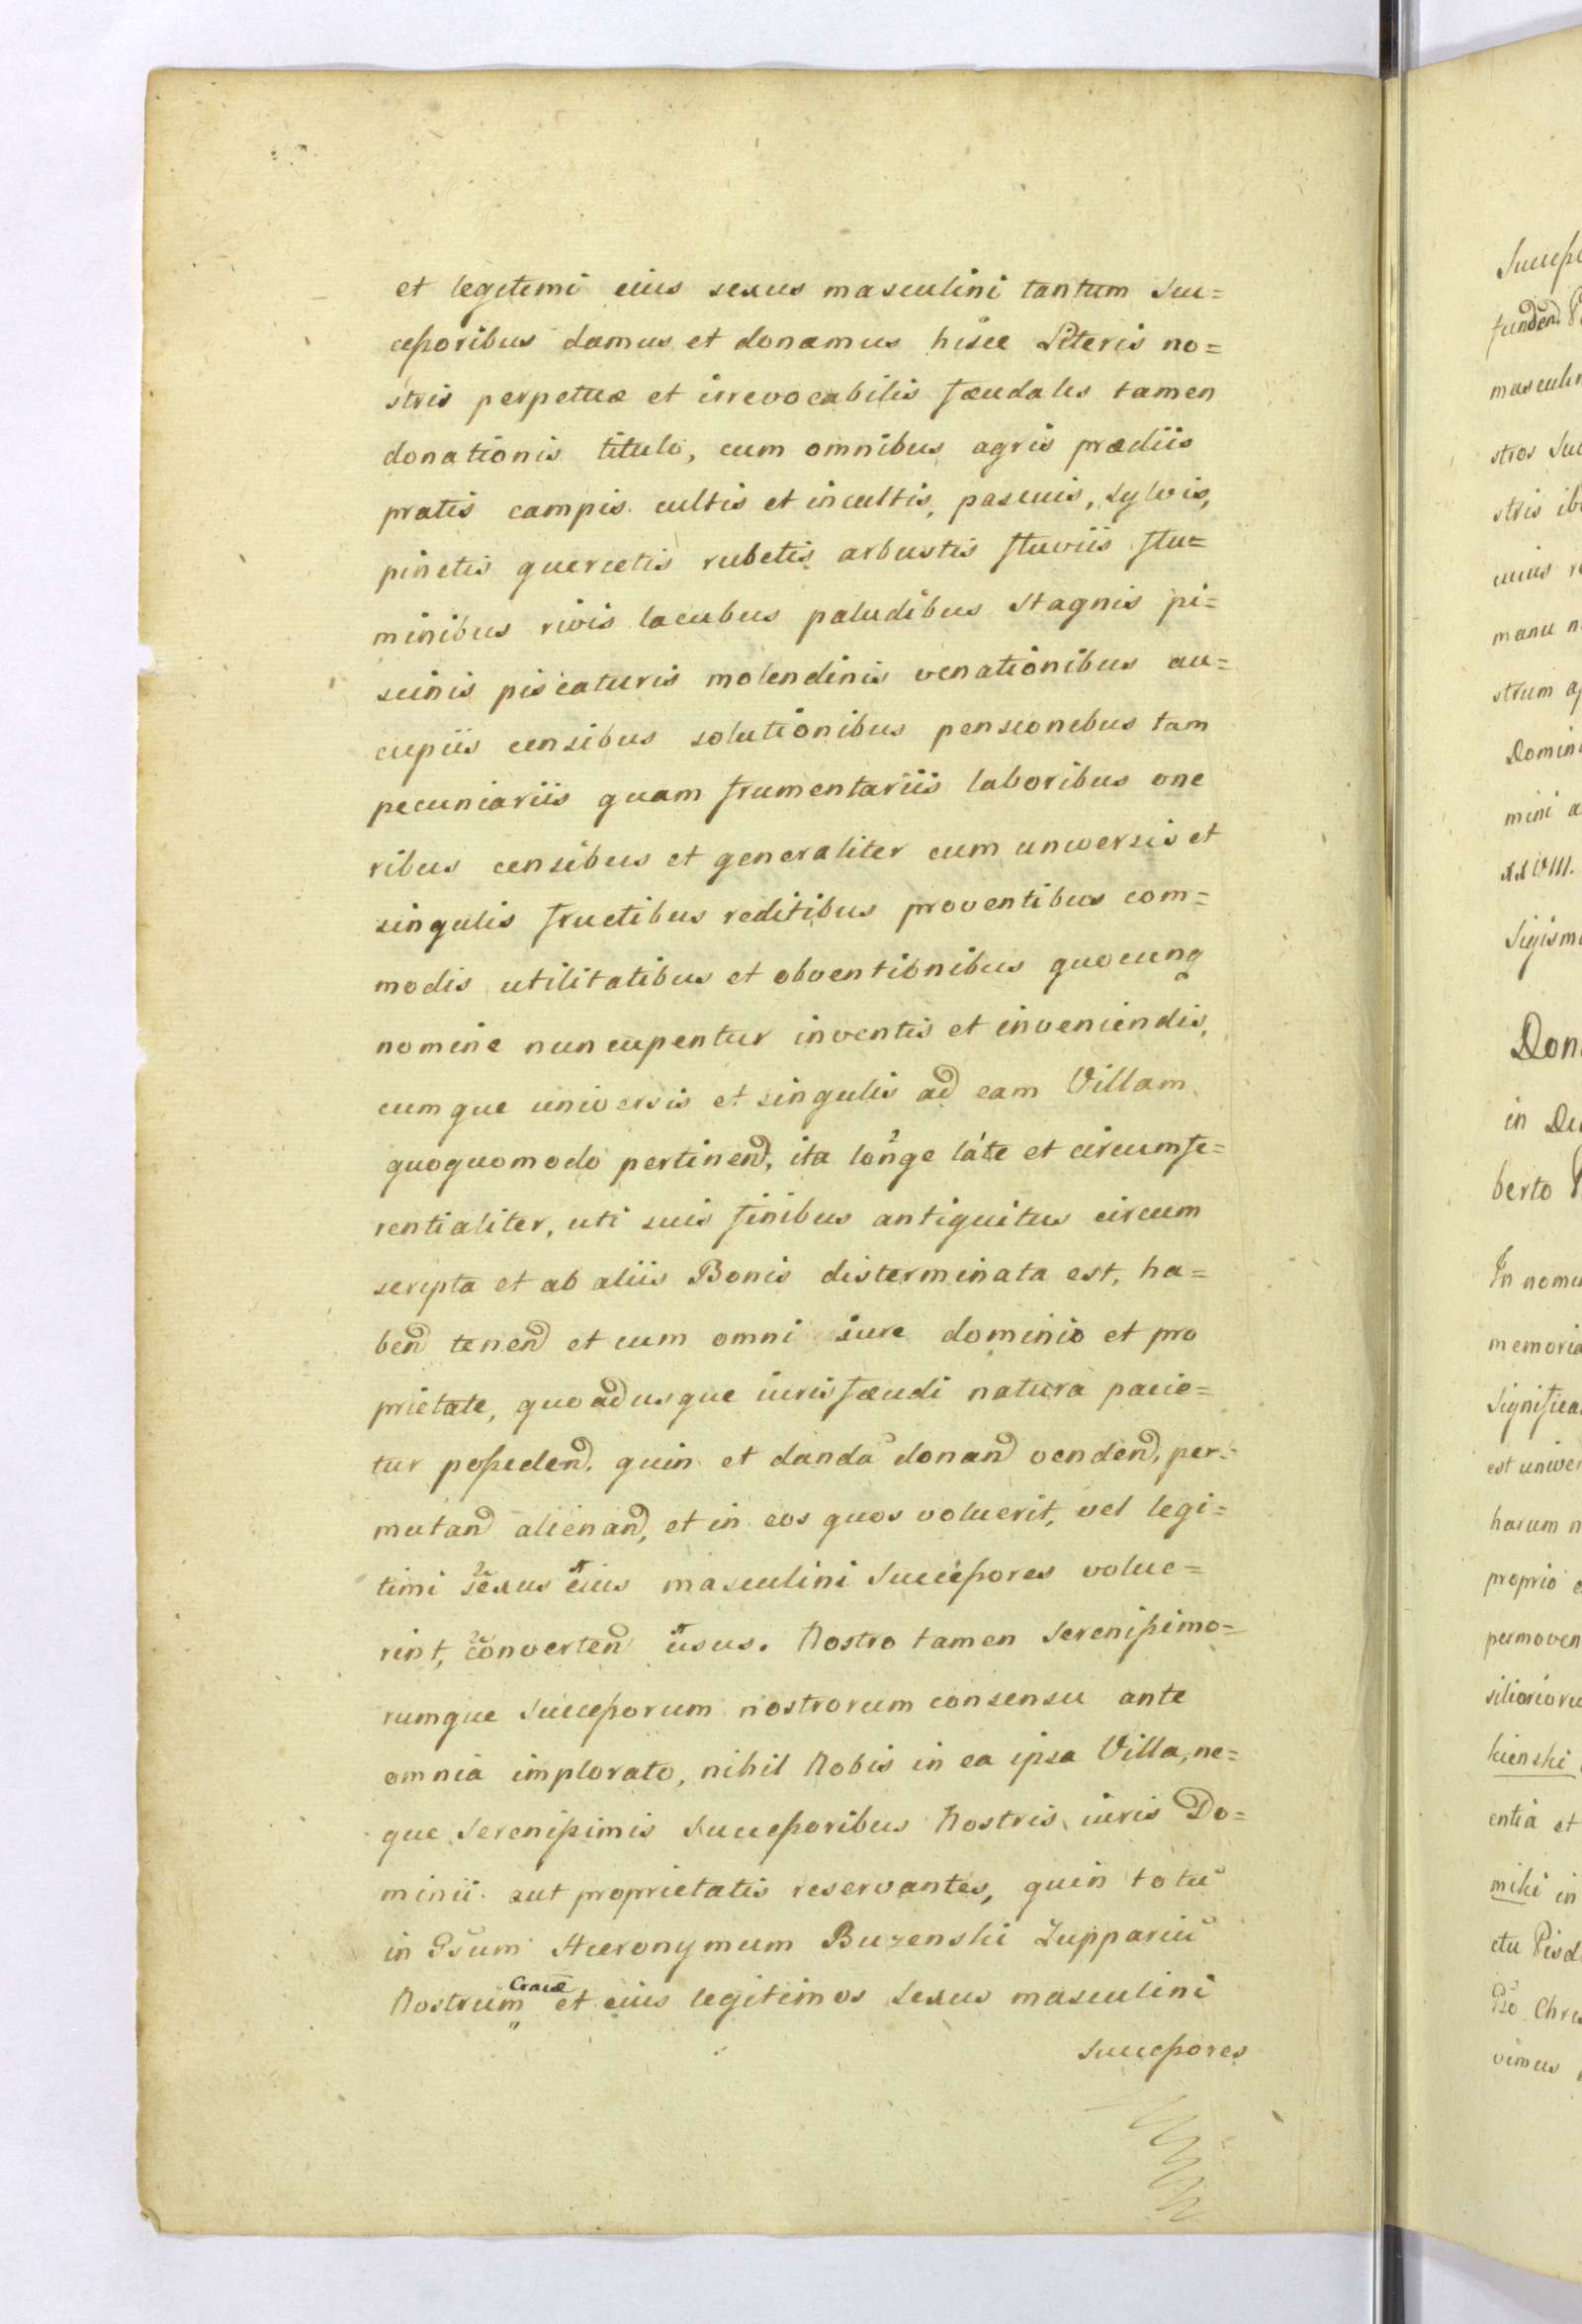 et legitimi eius sexus masculini tantum Suc=
ceßoribus damus et donamus hisce Literis no=
stris perpetuæ et irrevocabilis fæudales tamen
donationis titulo, cum omnibus agris prædiis
pratis campis cultis et incultis, pascuis, sylvis,
pinetis quercetis rubetis arbustis fluviis flu=
minibus rivis lacubus paludibus stagnis pi=
scinis piscaturis molendinis venationibus au=
cupiis censibus solutionibus pensionibus tam
pecuniariis quam frumentariis laboribus one
ribus censibus et generaliter cum universis et
singulis fructibus reditibus proventibus com=
modis utilitatibus et obventionibus quocunq
nomine nuncupentur inventis et inveniendis,
cumque universis et singulis ad eam Villam
quoquomodo pertinend, ita longe láte et circumfe=
rentialiter, uti suis finibus antiquitus circum
scripta et ab aliis Bonis disterminata est, ha=
bend tenend et cum omni iure dominio et pro
prietate, quoadusque iuris fæudi natura pacie=
tur poßedend. quin et danda donand vendend, per=
mutand alienand, et in eos quos voluerit, vel legi=
timi sexus eius masculini Succeßores volue=
rint, converten usus. Nostro tamen Serenißimo=
rumque Succeßorum nostrorum consensu ante
omnia implorato, nihil Nobis in ea ipsa Villa, ne=
que Serenißimis Succeßoribus Nostris iuris Do=
minii aut proprietatis reservantes, quin totũ
in Gsum Hieronymum Buzenski Zuppariũ
Nostrum Crac̃e et eius legitimos sexus masculini
Succeßores